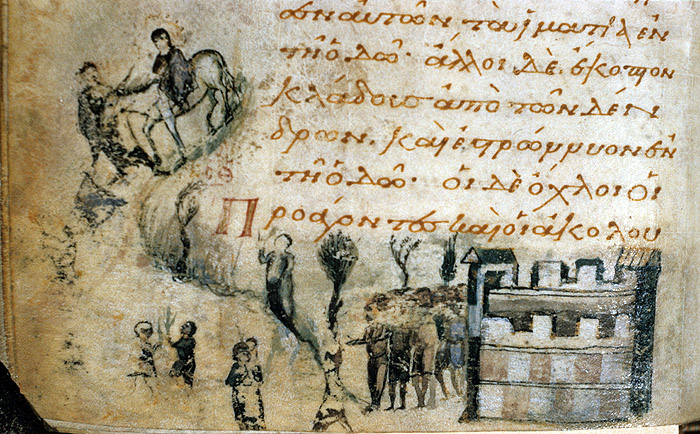 αὐτῶν τὰ ἱμάτια ἐν
τῆ ὁδῶ· ἄλλοι δὲ ἔκοπτον
κλάδους ἀπὸ τῶν δέν
δρων. καὶ ἐστρώννυον ἐν
τῆ ὁδῶ· οἱ δὲ ὄχλοι οἱ
Προάγοντες καὶ οἱ ἀκολου